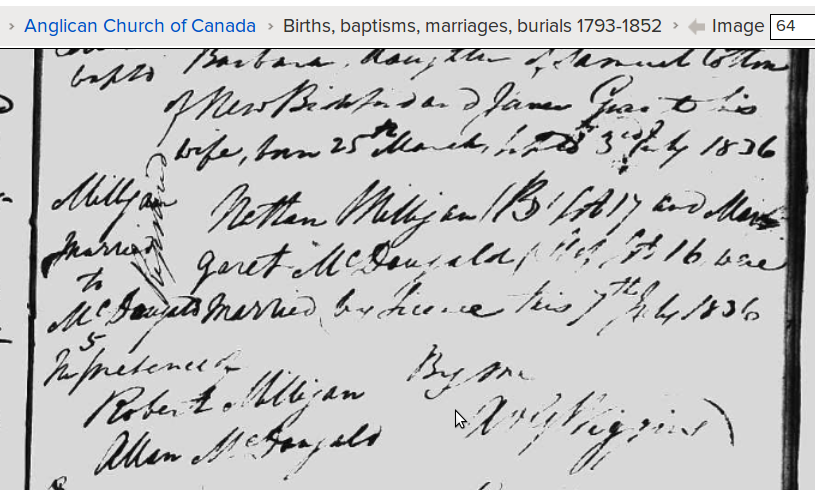 › Anglican Church of Canada › Births, baptisms, marriages, burials 1793-1852 › Image 64
bapto Barbara, daughter of Samuel Cotton
of New and Jane his
wife, born 25th March, 3rd July 1836
Milligan Nathan Milligan (B) Lot 17 and Mar
married garet McDougald, Lot 16 were
to
McDougald married by licence this 7th July 1836
5
In presence of By me
Robert Milligan Wiggins
Allan McDougald